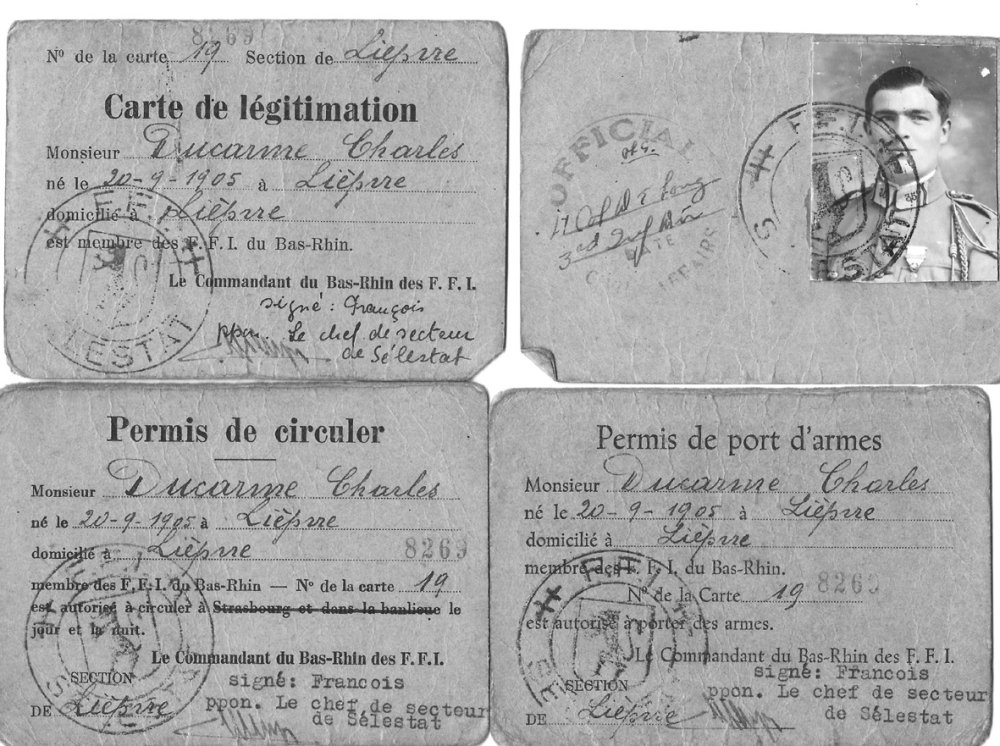 8269
Nº de la carte 19 Section de Lièpvre
Carte de légitimation
Monsieur Ducarme Charles
né le 20-9-1905 à Lièpvre
domicilié à Lièpvre
est membre des F. F. I. du Bas-Rhin.
Le Commandant du Bas-Rhin des F. F. I.
signé: François
ppon. Le chef de secteur
de Sélestat
F.F.I.
SELESTAT
OFFICIAL
DATE
CIVIL AFFAIRS
F.F.I.
SELESTAT
Permis de circuler
Monsieur Ducarme Charles
né le 20-9-1905 à Lièpvre
domicilié à Lièpvre 8269
membre des F. F. I. du Bas-Rhin — Nº de la carte 19
est autorisé à circuler à Strasbourg et dans la banlieue le
jour et la nuit.
Le Commandant du Bas-Rhin des F. F. I.
SECTION signé: Francois
DE Lièpvre ppon. Le chef de secteur
de Sélestat
Permis de port d'armes
Monsieur Ducarme Charles
né le 20-9-1905 à Lièpvre
domicilié à Lièpvre
membre des F. F. I. du Bas-Rhin.
Nº de la Carte 19 8269
est autorisé à porter des armes.
Le Commandant du Bas-Rhin des F. F. I.
signé: Francois
SECTION ppon. Le chef de secteur
DE Lièpvre de Sélestat